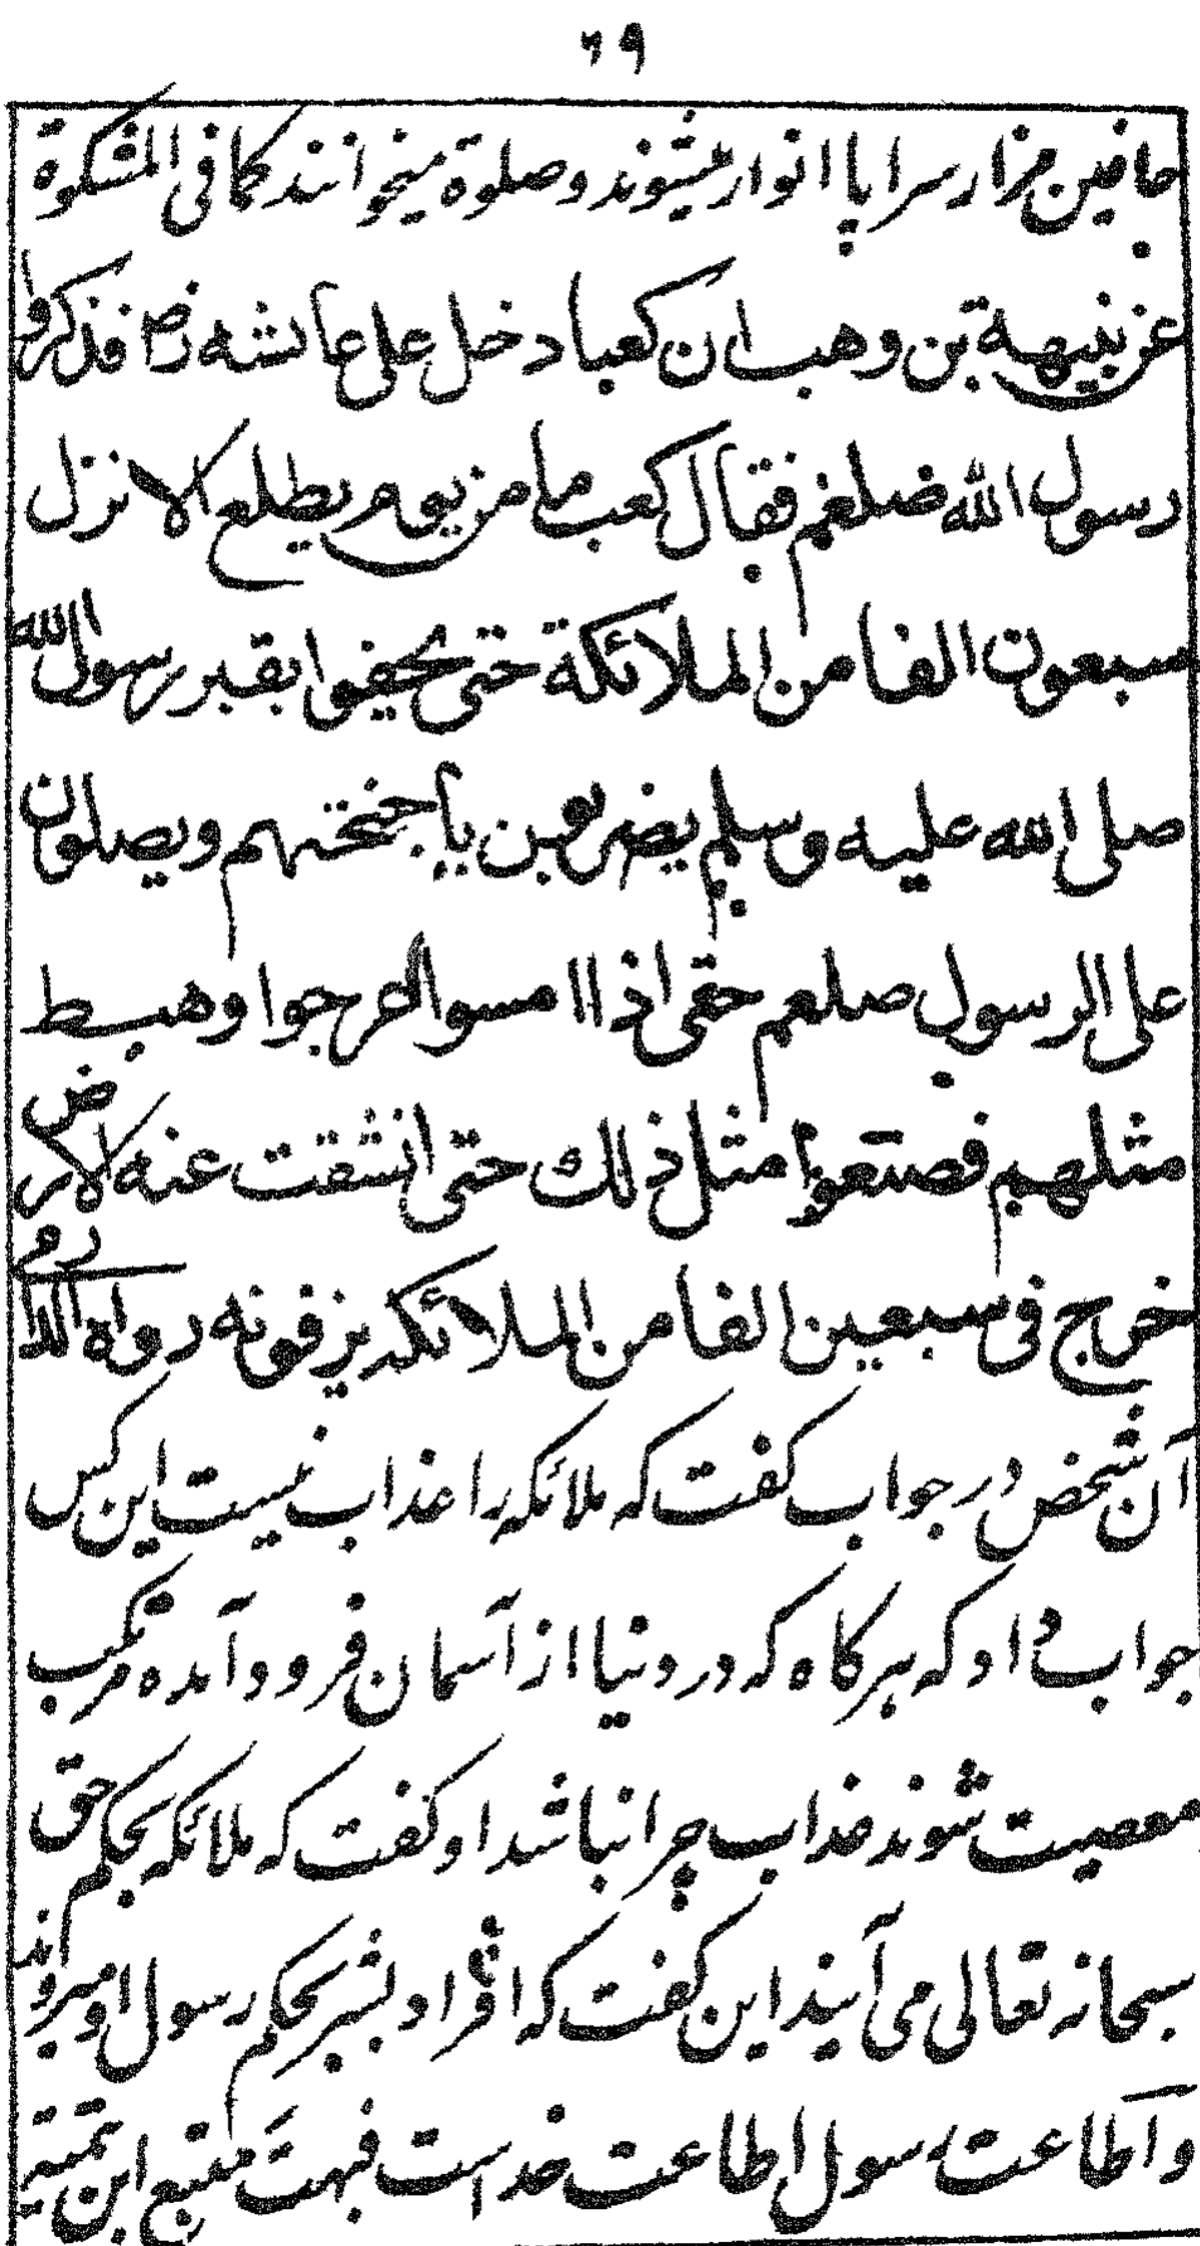 ۶۹
حافین مزار سراپا انوار میشوند و صلوة میخوانند کما فی المشکوة
عن نبیهة بن وهب ان کعبا دخل علی عائشه رض فذکروا
رسول الله صلعم فقال کعب ما من یوم یطلع الا نزل
سبعون الفا من الملائکة حتی یحفوا بقبر رسول الله
صلی الله علیه وسلم یضربون باجنحتهم ویصلون
علی الرسول صلعم حتی اذا امسوا عرجوا وهبط
مثلهم فصنعوا مثل ذلك حتی انشقت عنه الارض
خرج فی سبعین الفا من الملائکه یزفونه رواه الدارمی
آن شخص در جواب کفت که ملائکه را عذاب نیست این کس
جواب داد که هرکاه که در دنیا از آسمان فرود آمده مرتکب
معصیت شوند عذاب چرا نباشد او کفت که ملائکه بحکم حق
سبحانه تعالی می آیند این کفت که افراد بشر بحکم رسول او میروند
و اطاعت رسول اطاعت خداست فبهت متبع ابن تیمیه